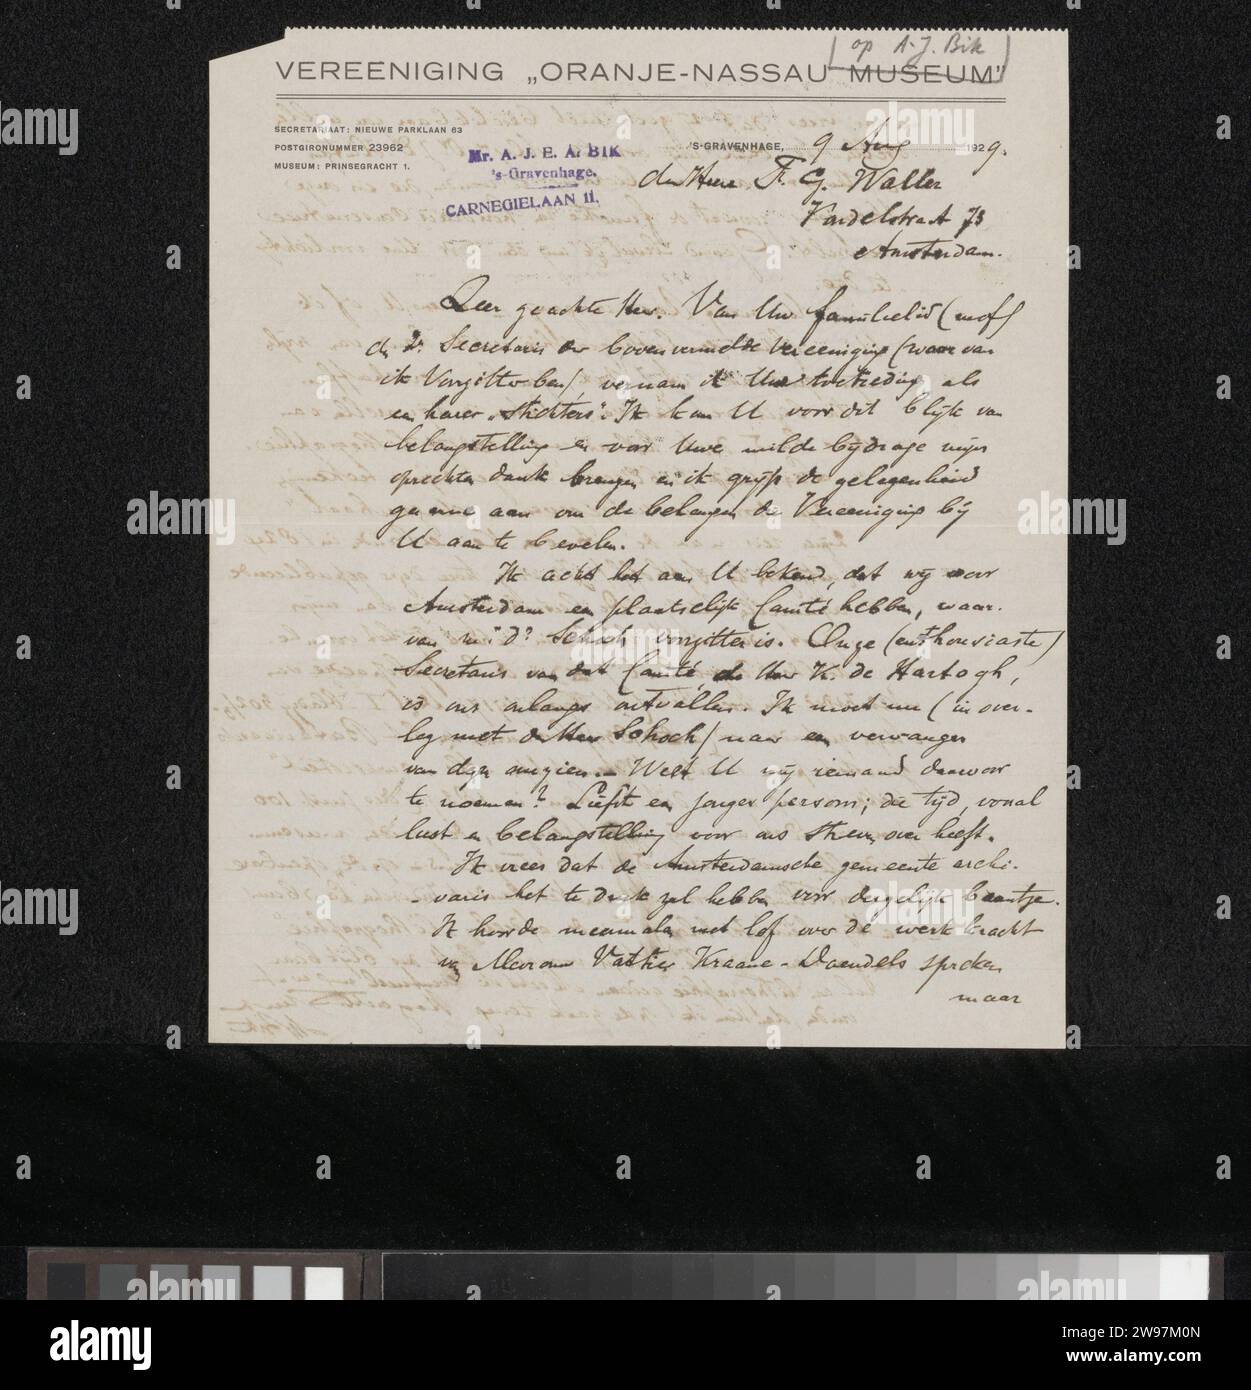 op A.J. Bik
VEREENIGING „ORANJE-NASSAU MUSEUM"
SECRETARIAAT: NIEUWE PARKLAAN 63
POSTGIRONUMMER 23962
MUSEUM: PRINSEGRACHT 1.
Mr. A. J. E. A. BIK
's-Gravenhage.
CARNEGIELAAN 11.
'S-GRAVENHAGE, 9 Aug 1929.
den Heere F. G. Waller
Vondelstraat 73
Amsterdam.
Zeer geachte Heer. Van Uw familielid (mej)
de 2e Secretaris der bovenvermelde Vereeniging (waarvan
ik Voorzitter ben) vernam ik Uwe toetreding als
een harer „Stichters". Ik kan U voor dit blijk van
belangstelling en voor Uwe milde bijdrage mijn
oprechten dank brengen en ik grijp de gelegenheid
gaarne aan om de belangen der Vereeniging bij
U aan te bevelen.
Ik acht het aan U bekend, dat wij voor
Amsterdam een plaatselijk Comité hebben, waar-
van Schoch voorzitter is. Onze (enthousiaste)
Secretaris van dat Comité, de Heer K. de Hartogh,
is ons onlangs ontvallen. Ik moet nu (in over-
leg met den Heer Schoch) naar een vervanger
van dezen omzien. Weet U mij iemand daarvoor
te noemen? Liefst een jonger persoon; die tijd, vooral
lust en belangstelling voor ons streven over heeft.
Ik vrees dat de Amsterdamsche gemeente archi-
varis het te druk zal hebben voor dergelijk baantje.
Ik hoorde meermalen met lof over de werkkracht
van Mevrouw Vattier Kraane-Daendels spreken
maar
alamy
Image ID: 2W97M0N
www.alamy.com